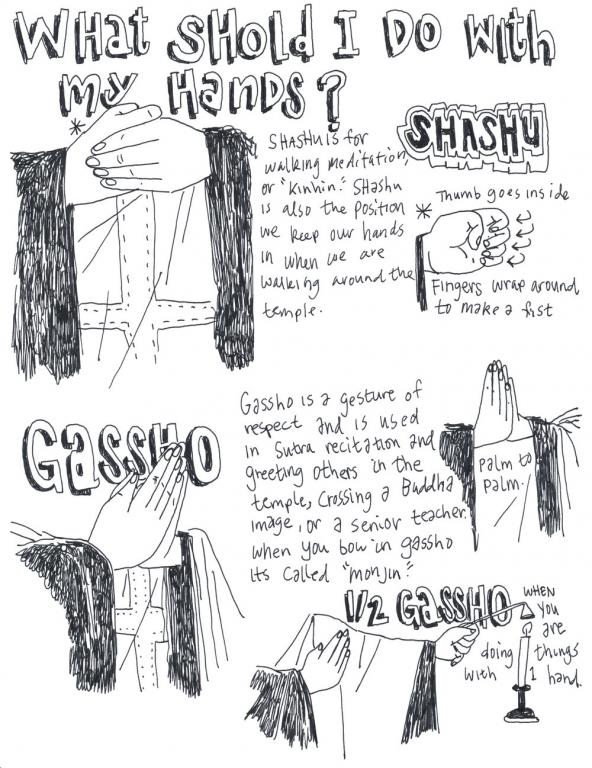 What SHOld I DO With
my Hands?
SHASHU is for
walking meditation,
or "kinhin." SHashu
is also the position
we keep our hands
in when we are
walking around the
temple.
SHASHU
Thumb goes inside
Fingers wrap around
to make a fist
GASSHO
Gassho is a gesture of
respect and is used
in Sutra recitation and
greeting others in the
temple, crossing a Buddha
image, or a senior teacher.
When you bow in gassho
its called "monjin."
Palm to
Palm.
1/2 GASSHO
WHEN
you
are
doing things
with 1 hand.